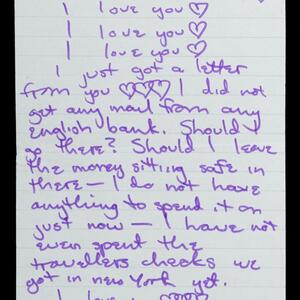 I love you♡
I love you♡
I love you♡
I just got a letter
from you ♡♡♡ I did not
get any mail from any
english bank. Should I
go there? Should I leave
the money sitting safe in
there — I do not have
anything to spend it on
just now — I have not
even spent the
travellers checks we
got in new York yet.
I love